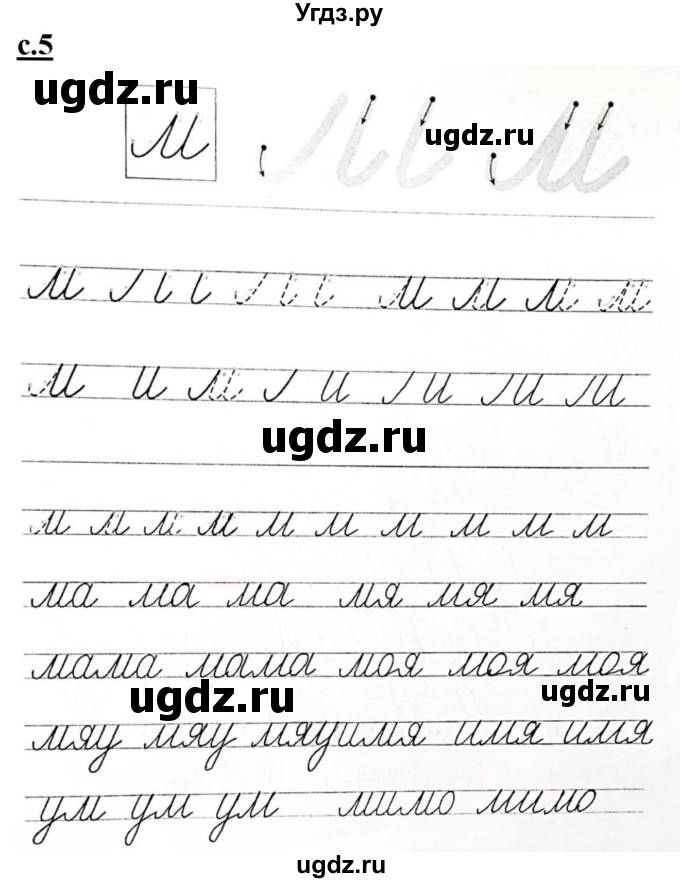 Угдз.ру
с.5
ugdz.ru
м
ugdz.ru
м м м м м
м и м и и м м
ugdz.ru
м м м м м м м м м м
ма ма ма мя мя мя
мама мама моя моя моя
ugdz.ru ugdz.ru
мяу мяу мяу имя имя имя
ум ум ум мимо мимо
ugdz.ru